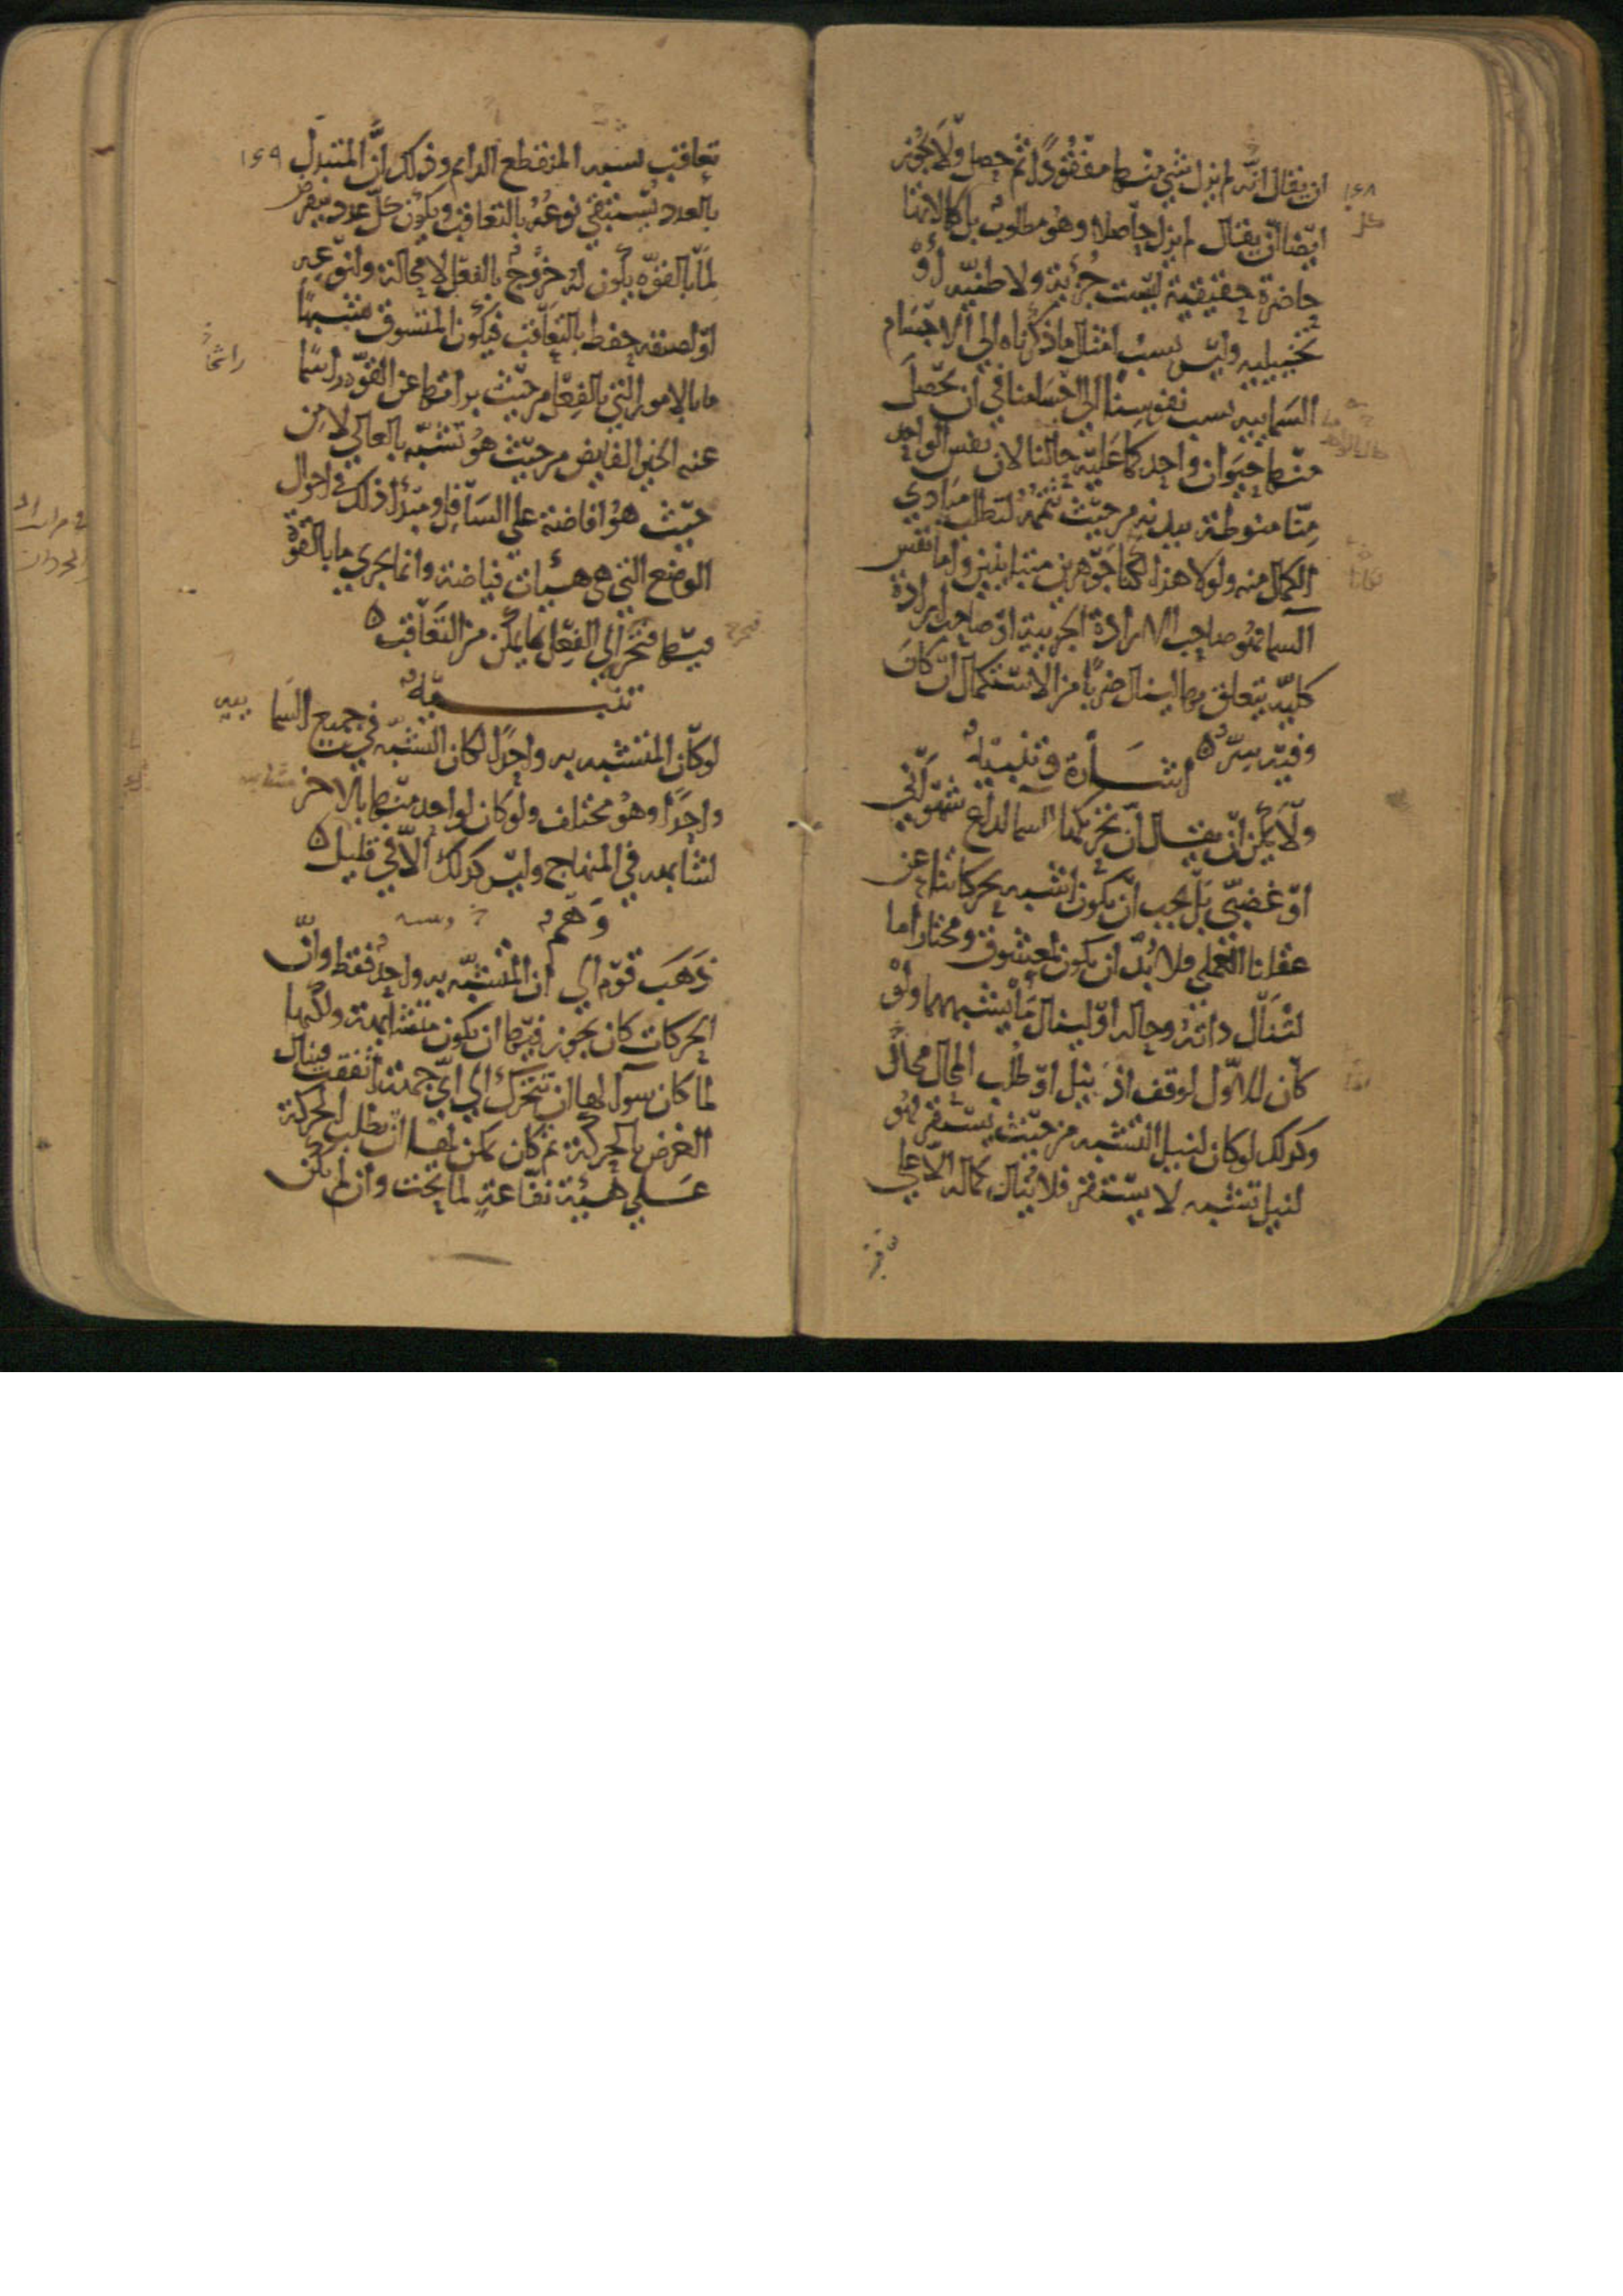 ان يقال انه لم يزل شي منها مفقودًا ثم حصل ولا يجوز
ايضا ان يقال لم يزل حاصلا وهو مطلوب بل كمالاتنا
حاضرة حقيقية ليست جزئية ولا ظنيه او
تخييليه وليس نسب امثال ما ذكرناه الى الاجسام
السمايه نسب نفوسنا الى اجسامنا في ان يحصل
منها حيوان واحد كما عليه حالنا لان نفس الواحد
منا منوطة ببدنه من حيث تتمه لتطلب مبادي
الكمال منه ولولا هذا لكنا جوهرين متباينين واما نفس
السما فهو صاحب الارادة الجزيية او صاحب ارادة
كليه يتعلق بها لينال ضربا من الاستكمال ان كان
وفيه سر ه
اشارة وتنبيه
ولا يمكن ان يقال ان تحريكها السما لداع شهواني
او غضبي بل يجب ان يكون اشبه بحركاتنا عن
عقلنا العملي فلا بد ان يكون لمعشوق ومختار اما
لتنال ذاته وحاله او لينال ما يشبههما ولو
كان للاول لوقف اذ ينل او طلب المحال محال
وكذلك لو كان لنيل التشبه من حيث يستقر فهو
لنيل تشبه لا يستقر فلا ينال كماله الا على
تعاقب لشبه المنقطع الدايم وذلك ان المتبدل
بالعدد يستبقي نوعه بالتعاقب ويكون كل عدد يفرض
لما بالقوه يكون له خروج بالفعل لا محالة ولنوعه
او لصنفه حفظ بالتعاقب فيكون المتشوق متشبها
ما بالامور التي بالفعل من حيث براتها عن القوه راشحا
عنه الخير الفايض من حيث هو تشبه بالعالي لا من
حيث هو افاضة على السافل ومبدا ذلك في احوال
الوضع التي هي هيئات فياضة وانما يجري ما بالقوة
فيها فتخرج الى الفعل بما يمكن من التعاقب ه
تنبيه
لو كان المتشبه به واحدا لكان التشبه في جميع السما
ييه
واحدا وهو مختلف ولو كان لواحد منها بالاخر
لشابهه في المنهاج وليس كذلك الا في قليل ه
وهم
ذهب قوم الى ان المتشبه به واحد فقط وان
الحركات كان يجوز فيها ان يكون متشابهة ولكنها
لما كان سوا لها ان تتحرك الى اي جهة اتفقت فينال
الغرض بالحركة ثم كان يمكن لها ان يطلب الحركة
على هيئة نفاعة لما تحت وان لم يكن